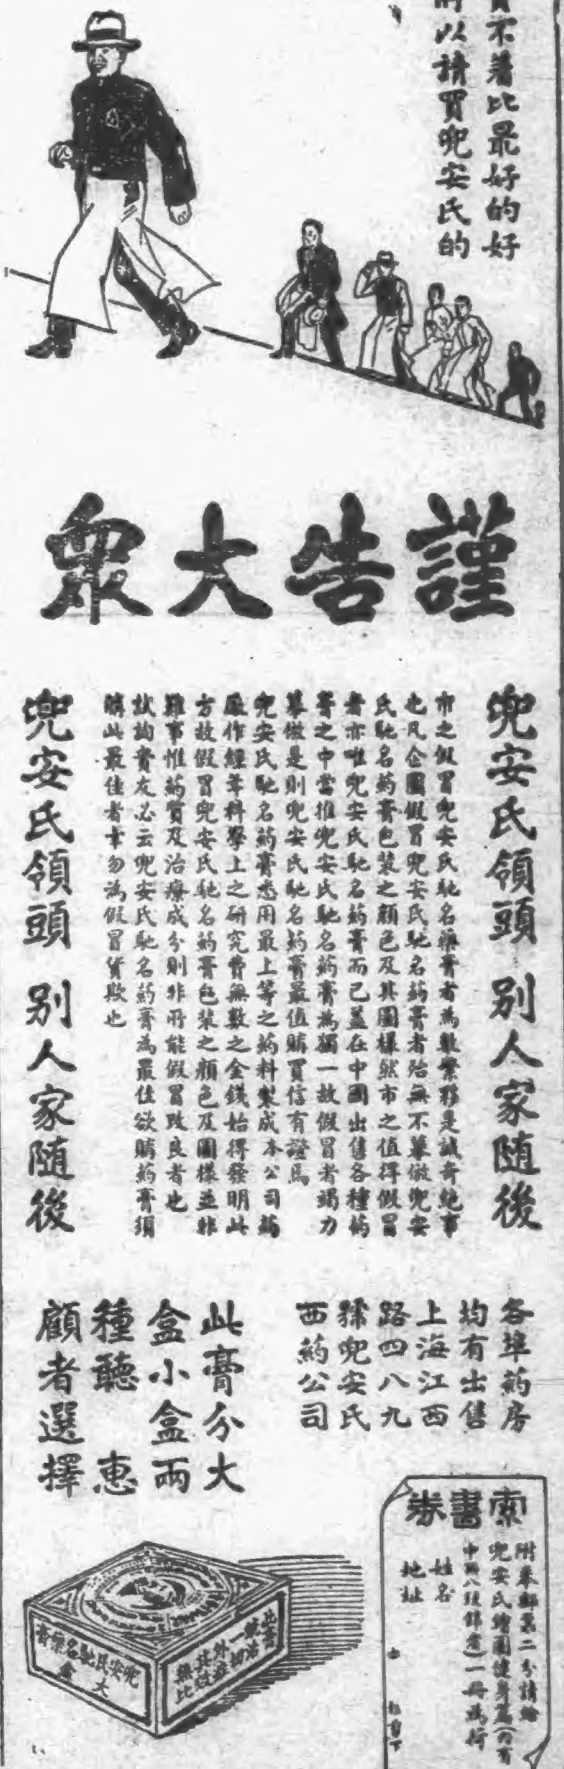 不着比最好的好
以請買兜安氏的
謹告大眾
兜安氏領頭 別人家隨後
市之假冒兜安氏馳名藥膏者為數繁夥是誠奇絕事
也凡企圖假冒兜安氏馳名葯膏者殆無不摹倣兜安
氏馳名葯膏包裝之顏色及其圖樣然市之值得假冒
者亦唯兜安氏馳名葯膏而已蓋在中國出售各種葯
膏之中當推兜安氏馳名葯膏為獨一故假冒者竭力
摹倣是則兜安氏馳名葯膏最值購買信有證焉
兜安氏馳名葯膏悉用最上等之葯料製成本公司葯
廠作經年科學上之研究費無數之金錢始得發明此
方故假冒兜安氏馳名葯膏包裝之顏色及圖樣並非
難事惟葯質及治療成分則非所能假冒改良者也
試詢貴友必云兜安氏馳名葯膏為最佳欲購葯膏須
購此最佳者幸勿為假冒貨欺也
兜安氏領頭 別人家隨後
各埠葯房
均有出售
上海江西
路四八九
號兜安氏
西葯公司
此膏分大
盒小盒兩
種聽 惠
顧者選擇
索書券
附奉郵票二分請給
兜安氏繪圖健身篇(內有
中 八段錦 )一冊為荷
姓名
地址
此膏
統治
一切
外症
註效
無比
兜安氏馳名藥膏
大盒